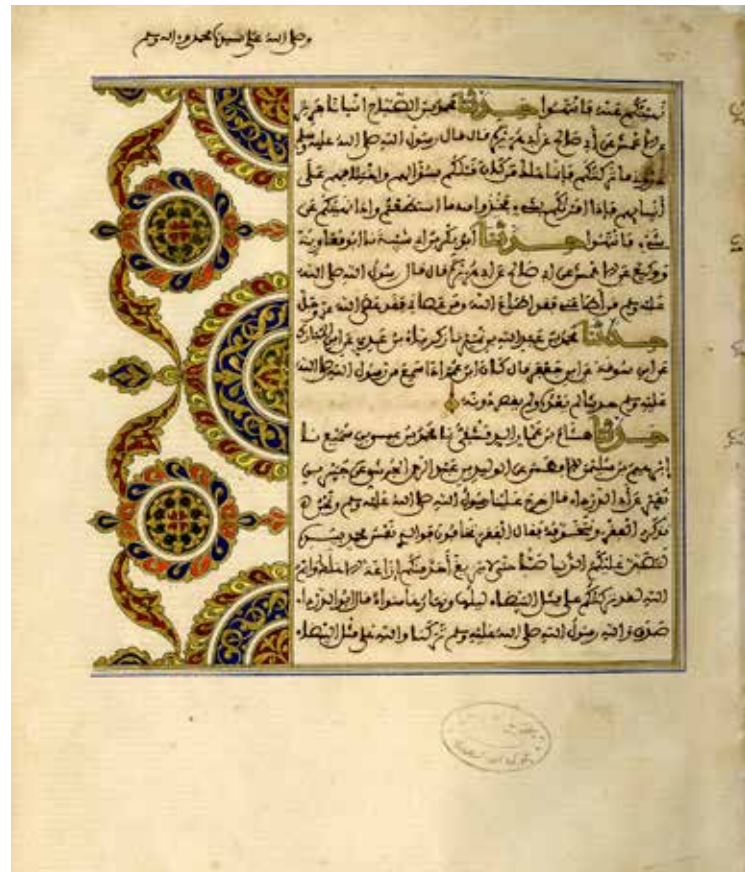 وصلى الله على سيدنا محمد وءاله وسلم
نهيتكم عنه فانتهوا حدثنا محمد بن الصباح انبانا جرير
عن الاعمش عن أبي صالح عن أبي هريرة قال قال رسول الله صلى الله عليه وسلم
ذروني ما تركتكم فإنما هلك من كان قبلكم بسؤالهم واختلافهم على
أنبيائهم فإذا امرتكم بشيء فخذوا منه ما استطعتم وإذا نهيتكم عن
شيء فانتهوا حدثنا أبو بكر بن أبي شيبة نا ابو معاوية
ووكيع عن الاعمش عن أبي صالح عن أبي هريرة قال قال رسول الله صلى الله
عليه وسلم من أطاعني فقد أطاع الله ومن عصاني فقد عصى الله عز وجل
حدثنا محمد بن عبد الله بن نمير نا زكرياء بن عدي عن ابن المبارك
عن ابن سوقة عن ابي جعفر قال كان ابن عمر إذا سمع من رسول الله صلى الله
عليه وسلم حديثا لم يعده ولم يقصر دونه
حدثنا هشام بن عمار الدمشقي نا محمد بن عيسى بن سميع نا
إبرهيم بن سليمن الافطس عن الوليد بن عبد الرحمن الجرشي عن جبير بن
نفير عن أبي الدرداء قال خرج علينا رسول الله صلى الله عليه وسلم ونحن
نذكر الفقر ونتخوفه فقال الفقر تخافون فوالذي نفس محمد بيده
لتصبن عليكم الدنيا صبا حتى لا يزيغ أحد منكم إزاغة الا وايم
الله لقد تركتكم على مثل البيضاء ليلها ونهارها سواء قال ابو الدرداء
صدق والله رسول الله صلى الله عليه وسلم تركنا والله على مثل البيضاء